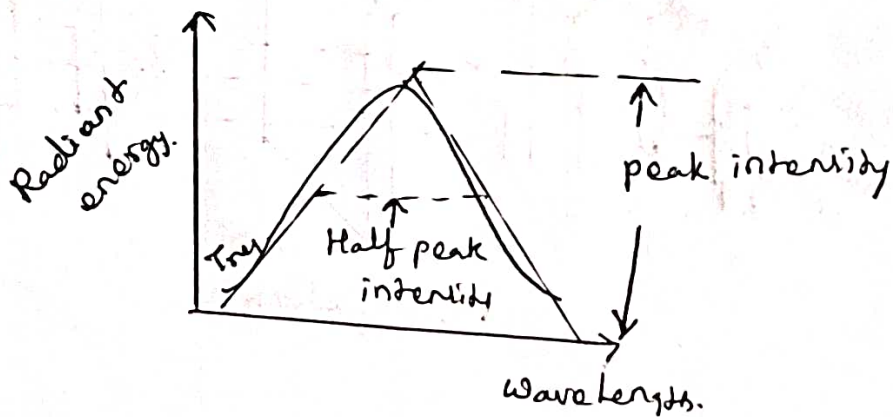 Radiant
energy.
peak intensity
Half peak
intensity
Wavelength.